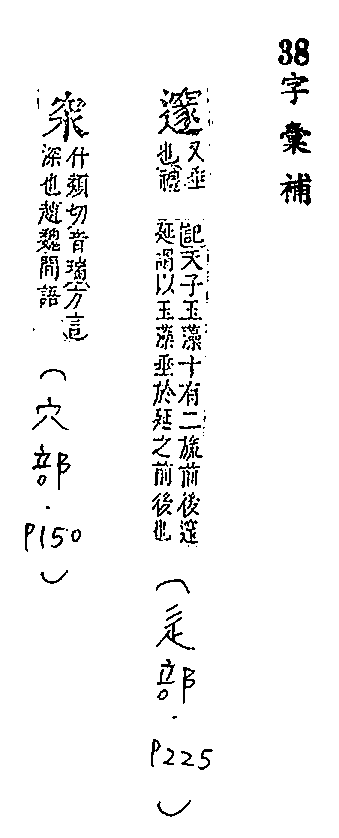 38字彙補
邃 又垂也禮記天子玉藻十有二旒前後邃延謂以玉藻垂於延之前後也(辵部·P225)
什類切音瑞方言深也趙魏間語(穴部·P150)